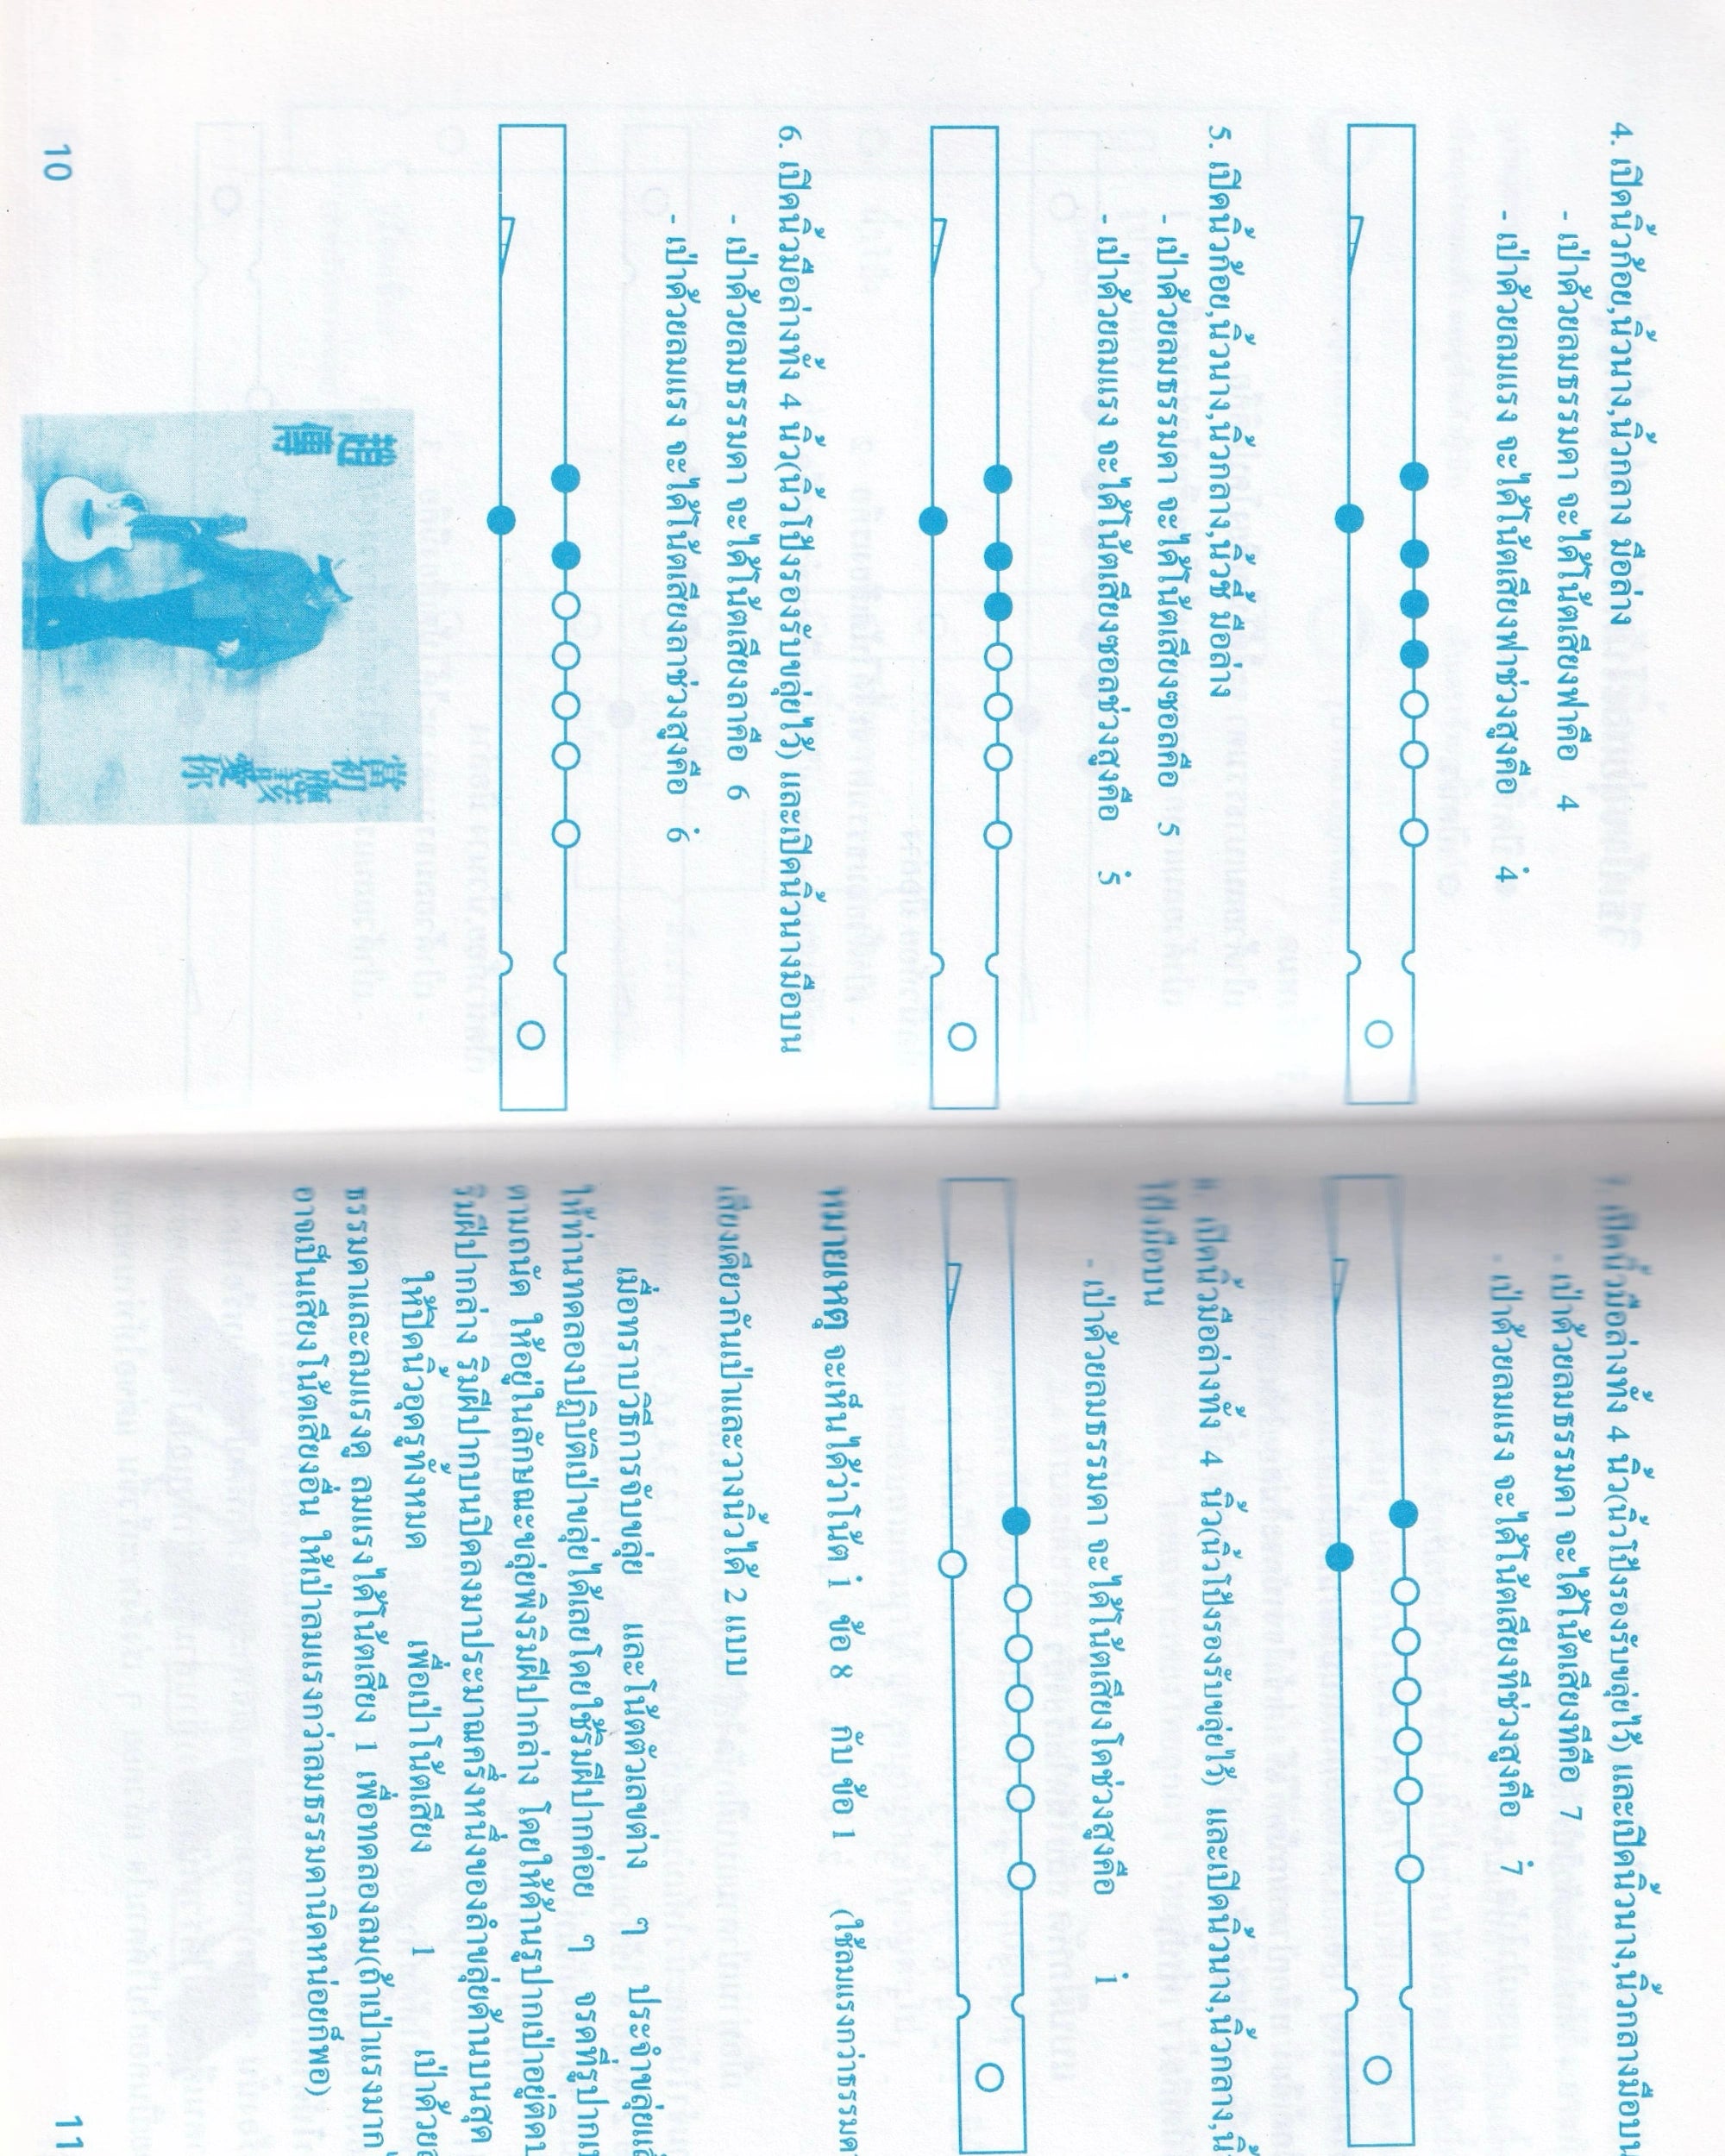 4. เปิดนิ้วก้อย,นิ้วนาง,นิ้วกลาง มือล่าง
- เป่าด้วยลมธรรมดา จะได้โน้ตเสียงฟาคือ 4
- เป่าด้วยลมแรง จะได้โน้ตเสียงฟาช่วงสูงคือ 4̇
5. เปิดนิ้วก้อย,นิ้วนาง,นิ้วกลาง,นิ้วชี้ มือล่าง
- เป่าด้วยลมธรรมดา จะได้โน้ตเสียงซอลคือ 5
- เป่าด้วยลมแรง จะได้โน้ตเสียงซอลช่วงสูงคือ 5̇
6. เปิดนิ้วมือล่างทั้ง 4 นิ้ว(นิ้วโป้งรองรับขลุ่ยไว้) และเปิดนิ้วนางมือบน
- เป่าด้วยลมธรรมดา จะได้โน้ตเสียงลาคือ 6
- เป่าด้วยลมแรง จะได้โน้ตเสียงลาช่วงสูงคือ 6̇
趙傳
當初應該愛你
10
7. เปิดนิ้วมือล่างทั้ง 4 นิ้ว(นิ้วโป้งรองรับขลุ่ยไว้) และเปิดนิ้วนาง,นิ้วกลางมือบน
- เป่าด้วยลมธรรมดา จะได้โน้ตเสียงทีคือ 7
- เป่าด้วยลมแรง จะได้โน้ตเสียงทีช่วงสูงคือ 7̇
8. เปิดนิ้วมือล่างทั้ง 4 นิ้ว(นิ้วโป้งรองรับขลุ่ยไว้) และเปิดนิ้วนาง,นิ้วกลาง,
โป้งมือบน
- เป่าด้วยลมธรรมดา จะได้โน้ตเสียงโดช่วงสูงคือ 1̇
หมายเหตุ จะเห็นได้ว่าโน้ต 1̇ ข้อ 8 กับ ข้อ 1 (ใช้ลมแรงกว่าธรรมดา
เสียงเดียวกันเป่าและวางนิ้วได้ 2 แบบ
เมื่อทราบวิธีการจับขลุ่ย และโน้ตตัวเลขต่าง ๆ ประจำขลุ่ย
ให้ท่านทดลองปฏิบัติเป่าขลุ่ยได้เลยโดยใช้ริมฝีปากค่อย ๆ จรดที่รูปาก
ตามถนัด ให้อยู่ในลักษณะขลุ่ยพิงริมฝีปากล่าง โดยให้ด้านรูปากเป่าอยู่ติด
ริมฝีปากล่าง ริมฝีปากบนเปิดลงมาประมาณครึ่งหนึ่งของลำขลุ่ยด้านบนสุด
ให้ปิดนิ้วอุดรูทั้งหมด เพื่อเป่าโน้ตเสียง 1 เป่าด้วย
ธรรมดาและลมแรงดู ลมแรงได้โน้ตเสียง 1̇ เพื่อทดลองลม(ถ้าเป่าแรงมาก
อาจเป็นเสียงโน้ตเสียงอื่น ให้เป่าลมแรงกว่าลมธรรมดานิดหน่อยก็พอ)
11